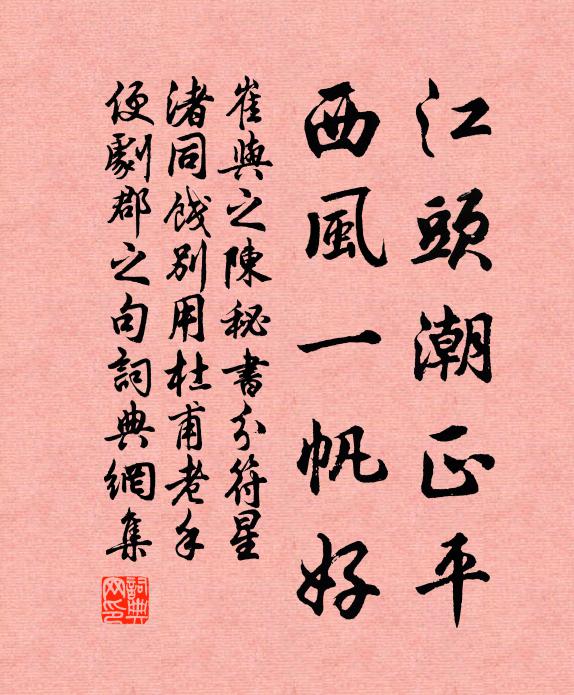 江頭潮正平
西風一帆好
崔與之陳秘書分符星
渚同餞別用杜甫老手
便劇郡之句詞典網集
詞典
网印